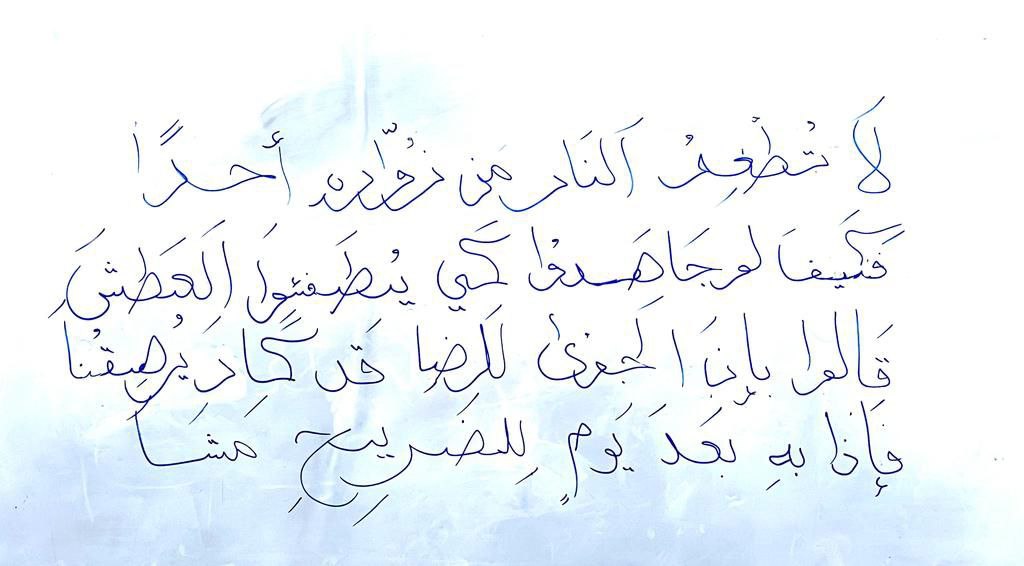 لَا تُطْغِهِ النَار مَن زُوّاره أحدًا
فَكَيفَ لو جَاهَدوا كَي يُطَفئوا العَطَشَ
قَالوا بإنَّ الجوىٰ للرِضا قَد كَادَ يُرهِقُنا
فإذا بهِ بَعدَ يَومٍ لِلضَرِيحِ مَشَىا